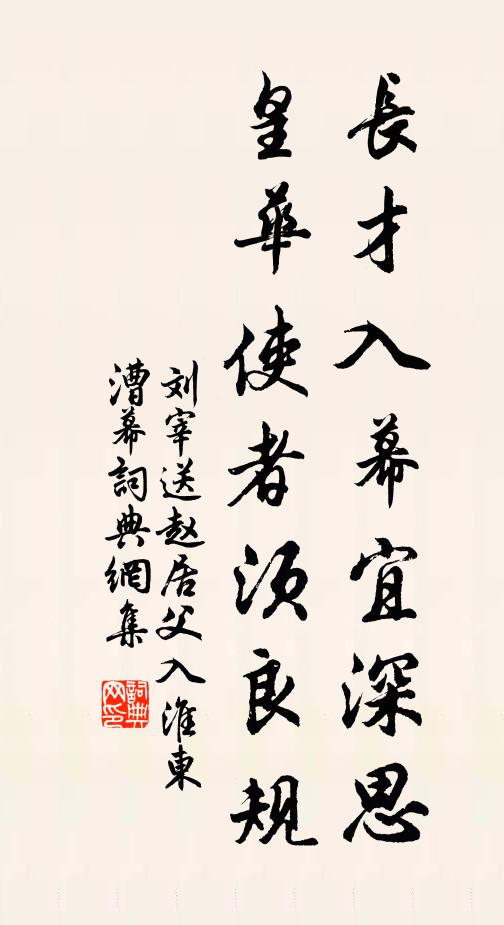 長才入幕宜深思
皇華使者須良規
刘宰送赵居父入淮東
漕幕詞典網集
詞典网印